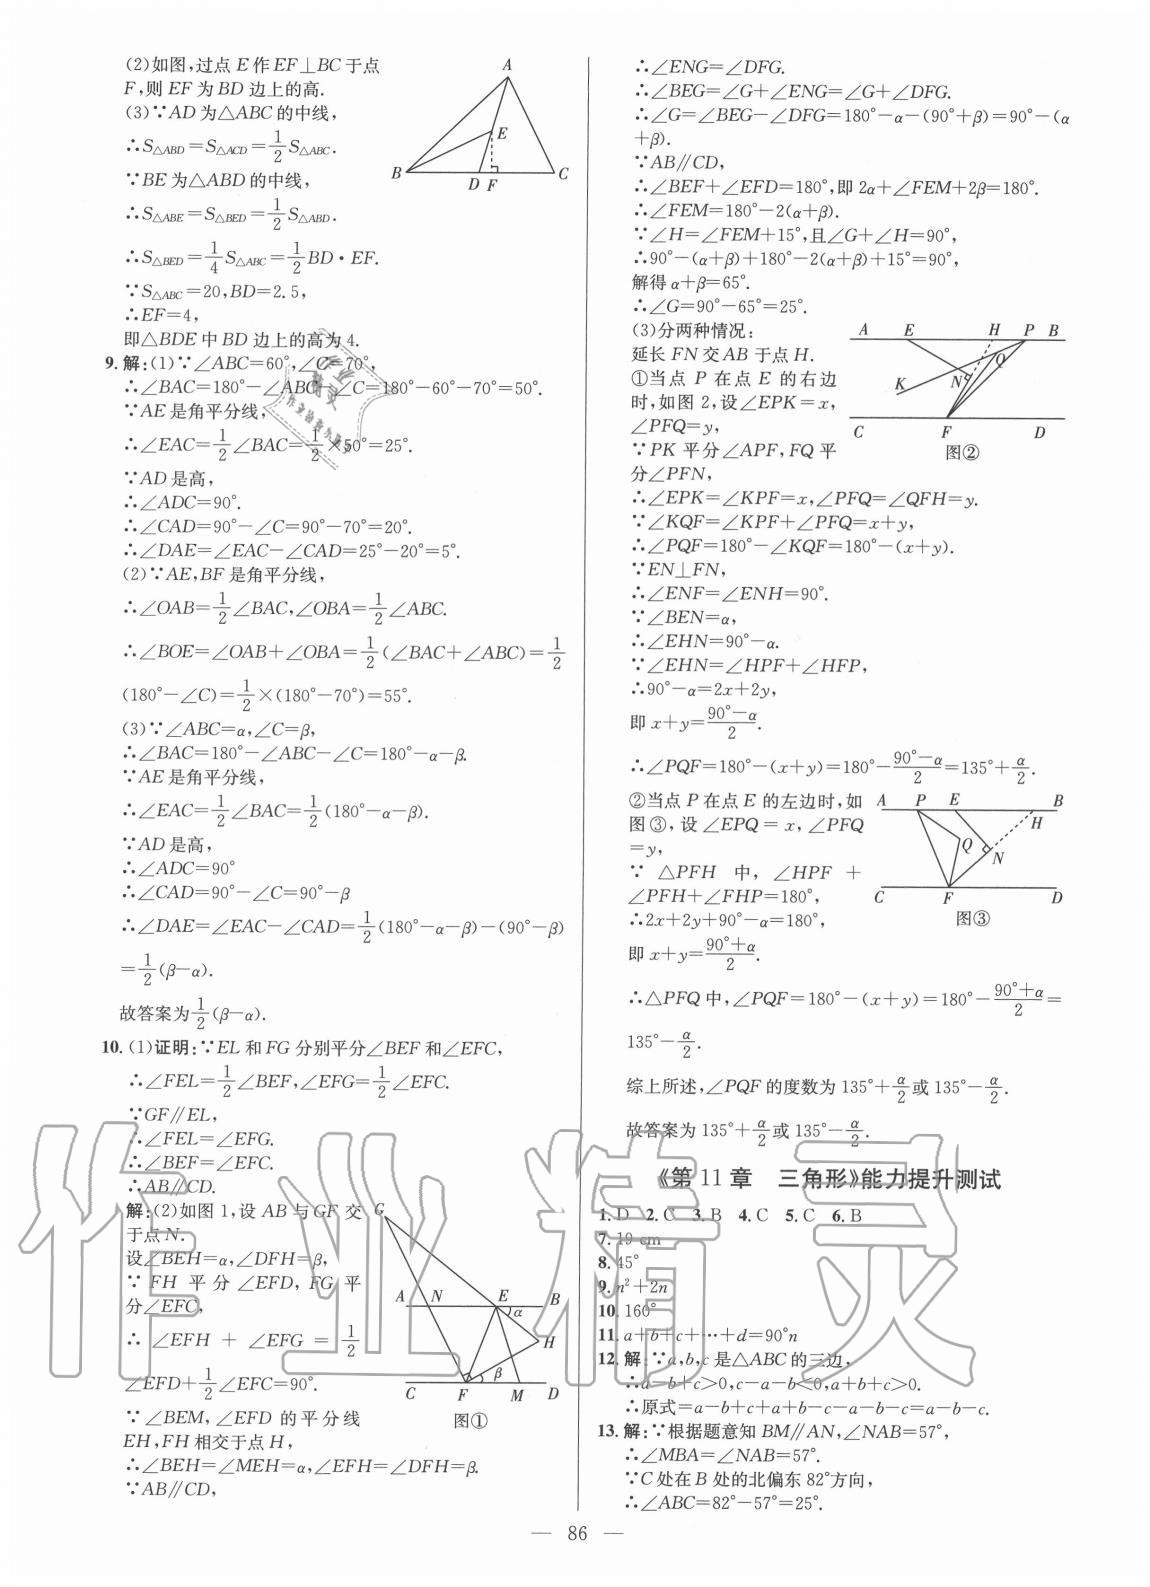 (2)如图,过点E作EF⊥BC于点
F,则EF为BD边上的高.
(3)∵AD为△ABC的中线,
∴S△ABD=S△ACD=1/2S△ABC.
∵BE为△ABD的中线,
∴S△ABE=S△BED=1/2S△ABD.
∴S△BED=1/4S△ABC=1/2BD·EF.
∵S△ABC=20,BD=2.5,
∴EF=4,
即△BDE中BD边上的高为4.
A
E
B
D F
C
9. 解:(1)∵∠ABC=60°,∠C=70°,
∴∠BAC=180°-∠ABC-∠C=180°-60°-70°=50°.
∵AE是角平分线,
∴∠EAC=1/2∠BAC=1/2×50°=25°.
∵AD是高,
∴∠ADC=90°.
∴∠CAD=90°-∠C=90°-70°=20°.
∴∠DAE=∠EAC-∠CAD=25°-20°=5°.
(2)∵AE,BF是角平分线,
∴∠OAB=1/2∠BAC,∠OBA=1/2∠ABC.
∴∠BOE=∠OAB+∠OBA=1/2(∠BAC+∠ABC)=1/2
(180°-∠C)=1/2×(180°-70°)=55°.
(3)∵∠ABC=α,∠C=β,
∴∠BAC=180°-∠ABC-∠C=180°-α-β.
∵AE是角平分线,
∴∠EAC=1/2∠BAC=1/2(180°-α-β).
∵AD是高,
∴∠ADC=90°
∴∠CAD=90°-∠C=90°-β
∴∠DAE=∠EAC-∠CAD=1/2(180°-α-β)-(90°-β)
=1/2(β-α).
故答案为1/2(β-α).
10. (1)证明:∵EL和FG分别平分∠BEF和∠EFC,
∴∠FEL=1/2∠BEF,∠EFG=1/2∠EFC.
∵GF∥EL,
∴∠FEL=∠EFG.
∴∠BEF=∠EFC.
∴AB∥CD.
解:(2)如图1,设AB与GF交
于点N.
设∠BEH=α,∠DFH=β,
∵FH平分∠EFD,FG平
分∠EFC,
∴∠EFH+∠EFG=1/2
∠EFD+1/2∠EFC=90°.
∵∠BEM,∠EFD的平分线
EH,FH相交于点H,
∴∠BEH=∠MEH=α,∠EFH=∠DFH=β.
∵AB∥CD,
G
A N E B
α
H
β
C F M D
图①
∴∠ENG=∠DFG.
∴∠BEG=∠G+∠ENG=∠G+∠DFG.
∴∠G=∠BEG-∠DFG=180°-α-(90°+β)=90°-(α
+β).
∵AB∥CD,
∴∠BEF+∠EFD=180°,即2α+∠FEM+2β=180°.
∴∠FEM=180°-2(α+β).
∵∠H=∠FEM+15°,且∠G+∠H=90°,
∴90°-(α+β)+180°-2(α+β)+15°=90°,
解得α+β=65°.
∴∠G=90°-65°=25°.
(3)分两种情况:
延长FN交AB于点H.
①当点P在点E的右边
时,如图2,设∠EPK=x,
∠PFQ=y,
∵PK平分∠APF,FQ平
分∠PFN,
A E H P B
Q
K N
C F D
图②
∴∠EPK=∠KPF=x,∠PFQ=∠QFH=y.
∵∠KQF=∠KPF+∠PFQ=x+y,
∴∠PQF=180°-∠KQF=180°-(x+y).
∵EN⊥FN,
∴∠ENF=∠ENH=90°.
∵∠BEN=α,
∴∠EHN=90°-α.
∵∠EHN=∠HPF+∠HFP,
∴90°-α=2x+2y,
即x+y=(90°-α)/2.
∴∠PQF=180°-(x+y)=180°-(90°-α)/2=135°+α/2.
②当点P在点E的左边时,如
图③,设∠EPQ=x,∠PFQ
=y,
∵△PFH中,∠HPF+
∠PFH+∠FHP=180°,
∴2x+2y+90°-α=180°,
即x+y=(90°+α)/2.
A P E B
H
Q
N
C F D
图③
∴△PFQ中,∠PQF=180°-(x+y)=180°-(90°+α)/2=
135°-α/2.
综上所述,∠PQF的度数为135°+α/2或135°-α/2.
故答案为135°+α/2或135°-α/2.
《第11章 三角形》能力提升测试
1. D 2. C 3. B 4. C 5. C 6. B
7. 19 cm
8. 45°
9. n²+2n
10. 160°
11. a+b+c+…+d=90°n
12. 解:∵a,b,c是△ABC的三边,
∴a-b+c>0,c-a-b<0,a+b+c>0.
∴原式=a-b+c+a+b-c-a-b-c=a-b-c.
13. 解:∵根据题意知BM∥AN,∠NAB=57°,
∴∠MBA=∠NAB=57°.
∵C处在B处的北偏东82°方向,
∴∠ABC=82°-57°=25°.
— 86 —
作业精灵